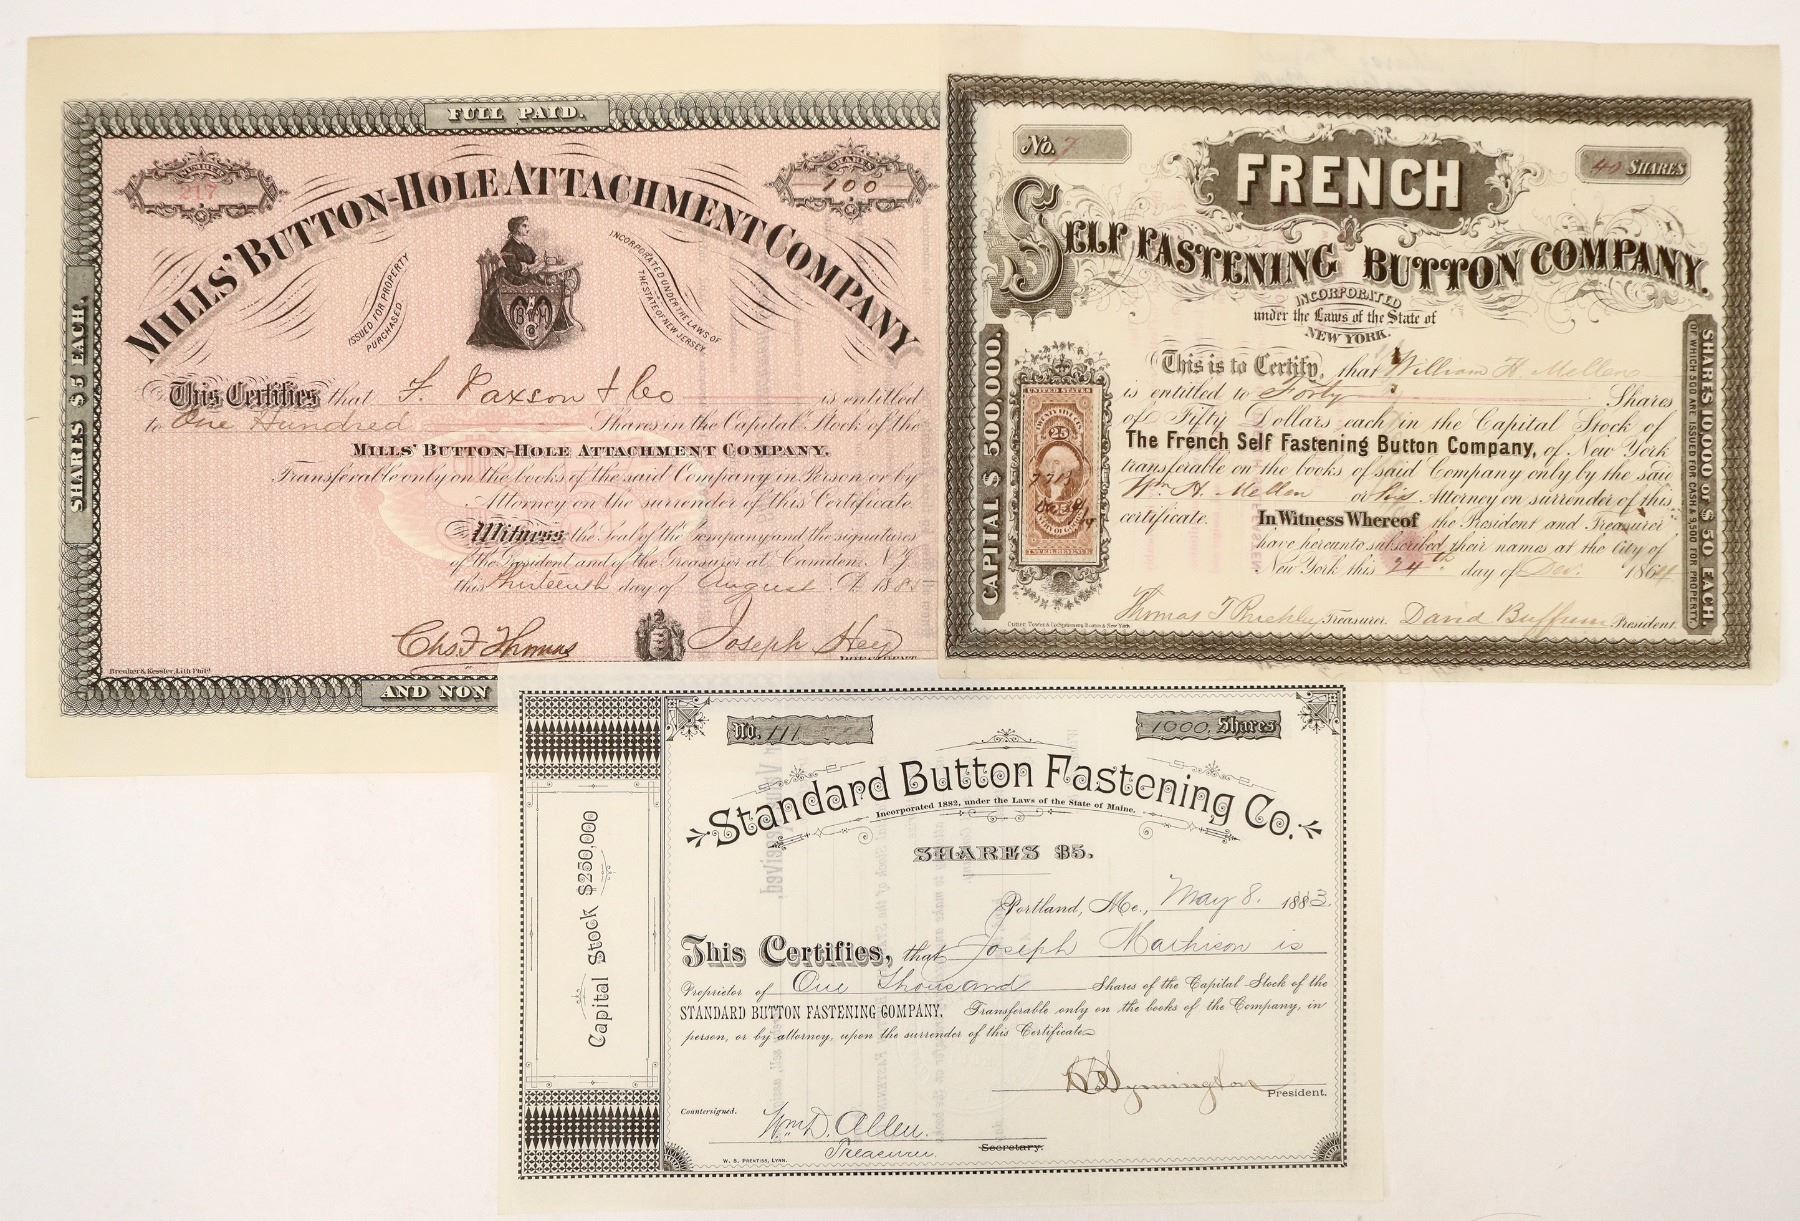 FULL PAID.
NUMBER
217
SHARES
100
MILLS' BUTTON-HOLE ATTACHMENT COMPANY
ISSUED FOR PROPERTY
PURCHASED
INCORPORATED UNDER THE LAWS OF
THE STATE OF NEW JERSEY.
SHARES $5 EACH.
This Certifies that F. Paxson & Co is entitled
to One Hundred Shares in the Capital Stock of the
MILLS' BUTTON-HOLE ATTACHMENT COMPANY.
Transferable only on the books of the said Company in Person or by
Attorney on the surrender of this Certificate.
Witness the Seal of the Company and the signatures
of the President and of the Treasurer at Camden N.J.
this thirteenth day of August A.D. 1885
Chas F Thomas
Joseph Hey
Breuker & Kessler, Lith Phila
AND NON
No. 7
40 SHARES
FRENCH
SELF FASTENING BUTTON COMPANY.
INCORPORATED
under the Laws of the State of
NEW YORK.
CAPITAL $500,000.
SHARES 10,000 OF $50 EACH.
OF WHICH 500 ARE ISSUED FOR CASH & 9,500 FOR PROPERTY.
UNITED STATES
25
INTER. REVENUE
This is to Certify, that William H. Mellen
is entitled to Forty Shares
of Fifty Dollars each in the Capital Stock of
The French Self Fastening Button Company, of New York
transferable on the books of said Company only by the said
Wm H. Mellen or his Attorney on surrender of this
certificate. In Witness Whereof the President and Treasurer
have hereunto subscribed their names at the City of
New York this 24th day of Dec. 1864
Thomas T Treasurer. David Buffum President.
Cutter, Tower & Co Stationers Boston & New York
No. 111
1000. Shares
Standard Button Fastening Co.
Incorporated 1882, under the Laws of the State of Maine.
SHARES $5.
Capital Stock $250,000
Portland, Me., May 8. 1883.
This Certifies, that Joseph Mathison is
Proprietor of One Thousand Shares of the Capital Stock of the
STANDARD BUTTON FASTENING COMPANY. Transferable only on the books of the Company, in
person, or by attorney, upon the surrender of this Certificate.
Symington
President.
Countersigned.
Wm D. Allen.
Treasurer.
Secretary.
W. S. PRENTISS, LYNN.